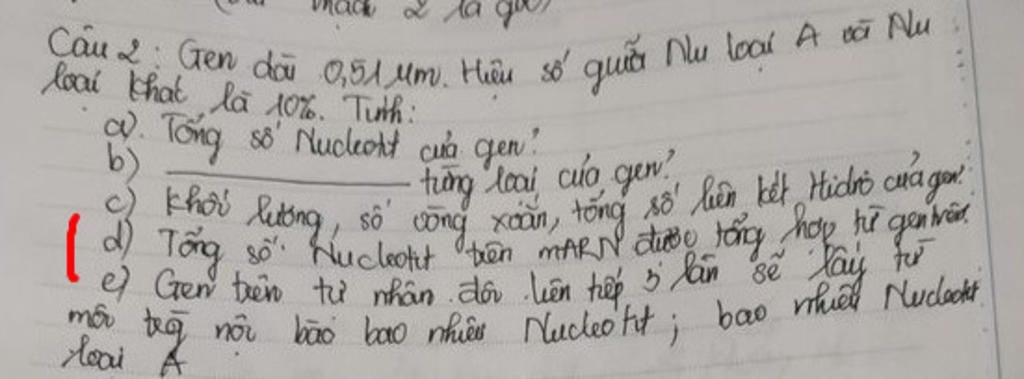 mạch 2 là gốc)
Câu 2: Gen dài 0,51 µm. Hiệu số giữa Nu loại A và Nu
loại khac là 10%. Tính:
a). Tổng số Nucleotit của gen?
b) ________ từng loại của gen?
c) Khối lượng, số vòng xoắn, tổng số liên kết Hidrô của gen?
d) Tổng số Nucleotit trên mARN được tổng hợp từ gen trên.
e) Gen trên tự nhân đôi liên tiếp 3 lần sẽ lấy từ
môi trg nội bào bao nhiêu Nucleotit; bao nhiêu Nucleotit
loại A